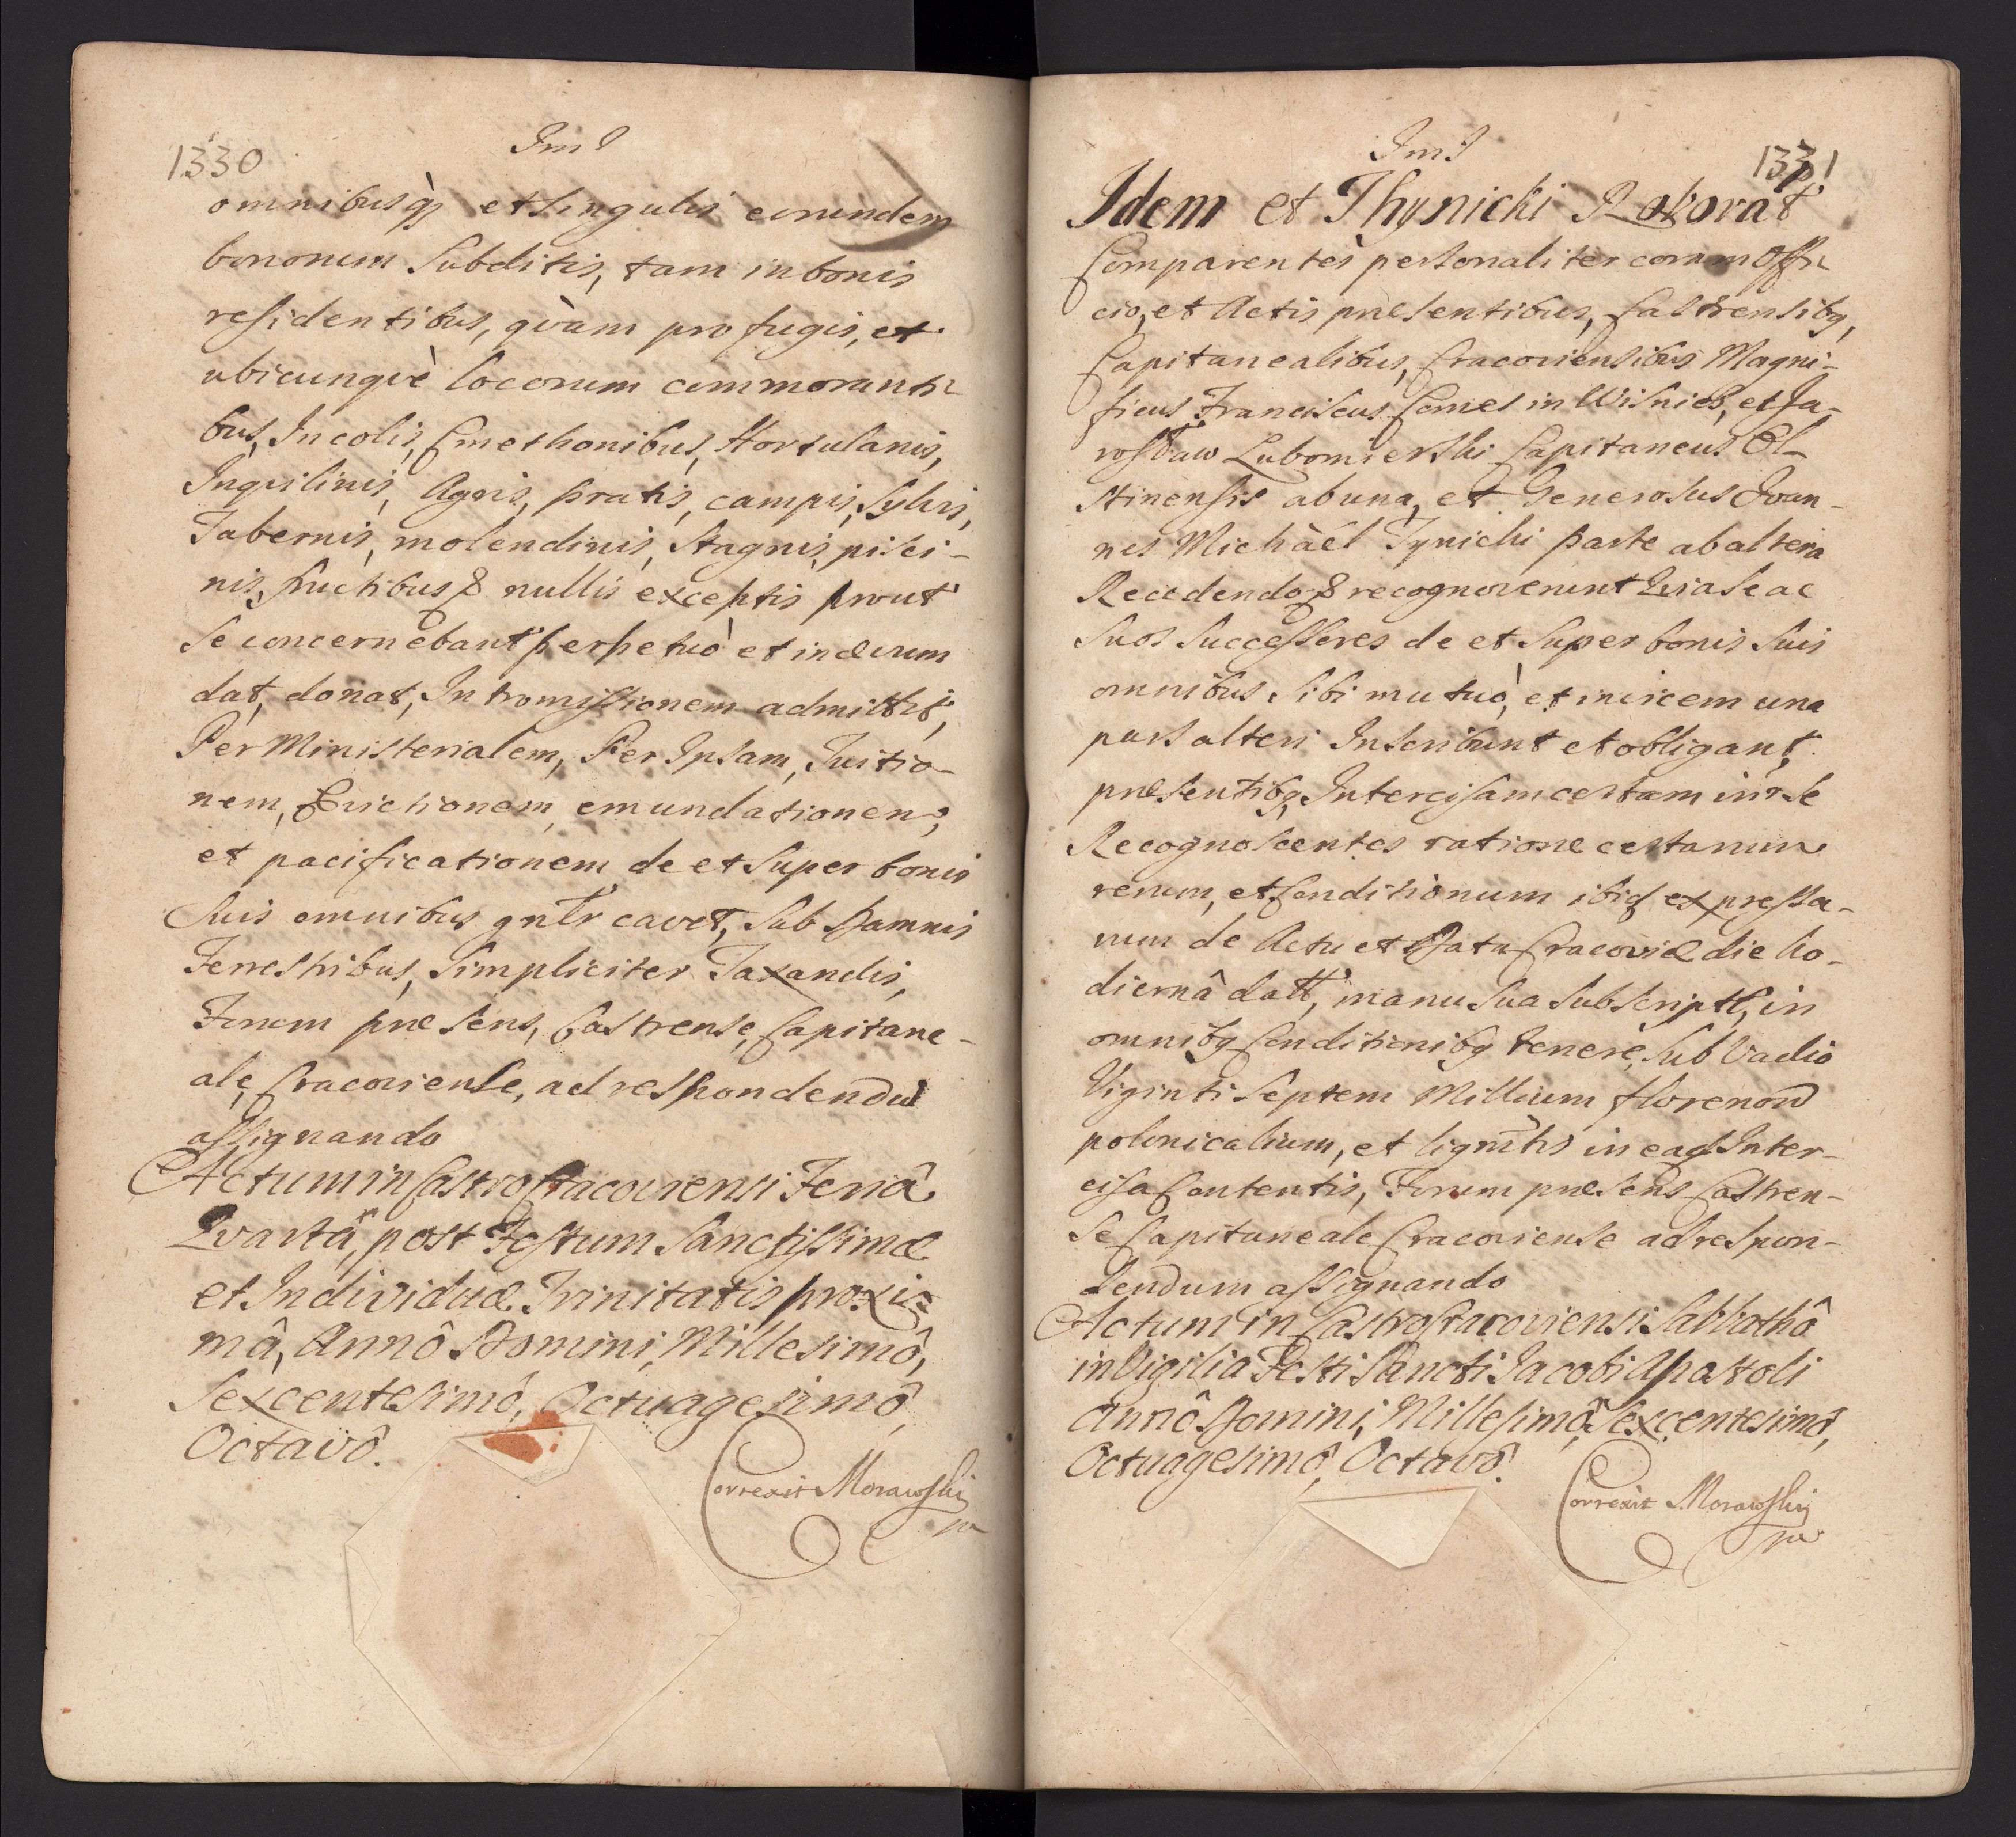 1330
omnibusq̀ꝫ et singulis eorundem
bonorum Subditis, tam in bonis
residentibus, qùam profugis, et
ubicunqùe locorum commoranti-
bus, Incolis, Cmethonibus, Hortulanis,
Inqvilinis, Agris, pratis, campis, Sylvis,
Tabernis, molendinis, Stagnis, pisci-
nis, fructibus & nullis exceptis prout
Se concernebant perpetuò et in ævum
dat, donat, Intromissionem admittit,
Per Ministerialem, Per Ipsam, Tuitio-
nem, Evictionem, emundationem,
et pacificationem de et Super bonis
Suis omnibus gnlr cavet, Sub Damnis
Terrestribus, Simpliciter Taxandis,
Forum præsens, Castrense, Capitane-
ale, Cracoviense, ad respondendu
assignando
Actum in Castro Cracoviensi Feriâ
Qvartâ, post Festum Sanctissimæ
et Individuæ Trinitatis proxi-
mâ, Annô Domini, Millesimô,
Sexcentesimô, Octuagesimô,
Octavô.
Correxit Morawski
1331
Idem et Thynicki Roborat
Comparentes personaliter coram Offi-
cio, et Actis præsentibus, Castrensibꝫ,
Capitanealibus, Cracoviensibus Magni-
ficus Franciscus Comes in Wisnicz, et Ja-
rosław Lubomierski Capitaneus Ol-
stinensis ab una, et Generosus Joan-
nes Michàél Tynicki parte ab altera
Recedendo & recognoverunt Qvia Se ac
Suos Successores de et Super bonis Suis
omnibus Sibi mutuò, et invicem una
pars alteri Inscribunt et obligant,
præsentibꝫ, Intercisam certam inr Se
Recognoscentes ratione certarum
rerum, et Conditionum ibiq expressa-
rum de Actu et Data Cracoviæ die ho-
diernâ datt, manu Sua Subscriptt, in
omnibꝫ Conditionibꝫ tenere, Sub Vadio
Viginti Septem Millium florenorū
polonicalium, et ligmtis in ead Inter-
cisa Contentis, Forum præsens Castren-
se Capitaneale Cracoviense ad respon-
dendum assignando
Actum in Castro Cracoviensi Sabbathô
in Vigilia Festi Sancti Jacobi Apostoli
Annô Domini, Millesimô, Sexcentesimô,
Octuagesimô, Octavô.
Correxit Morawski